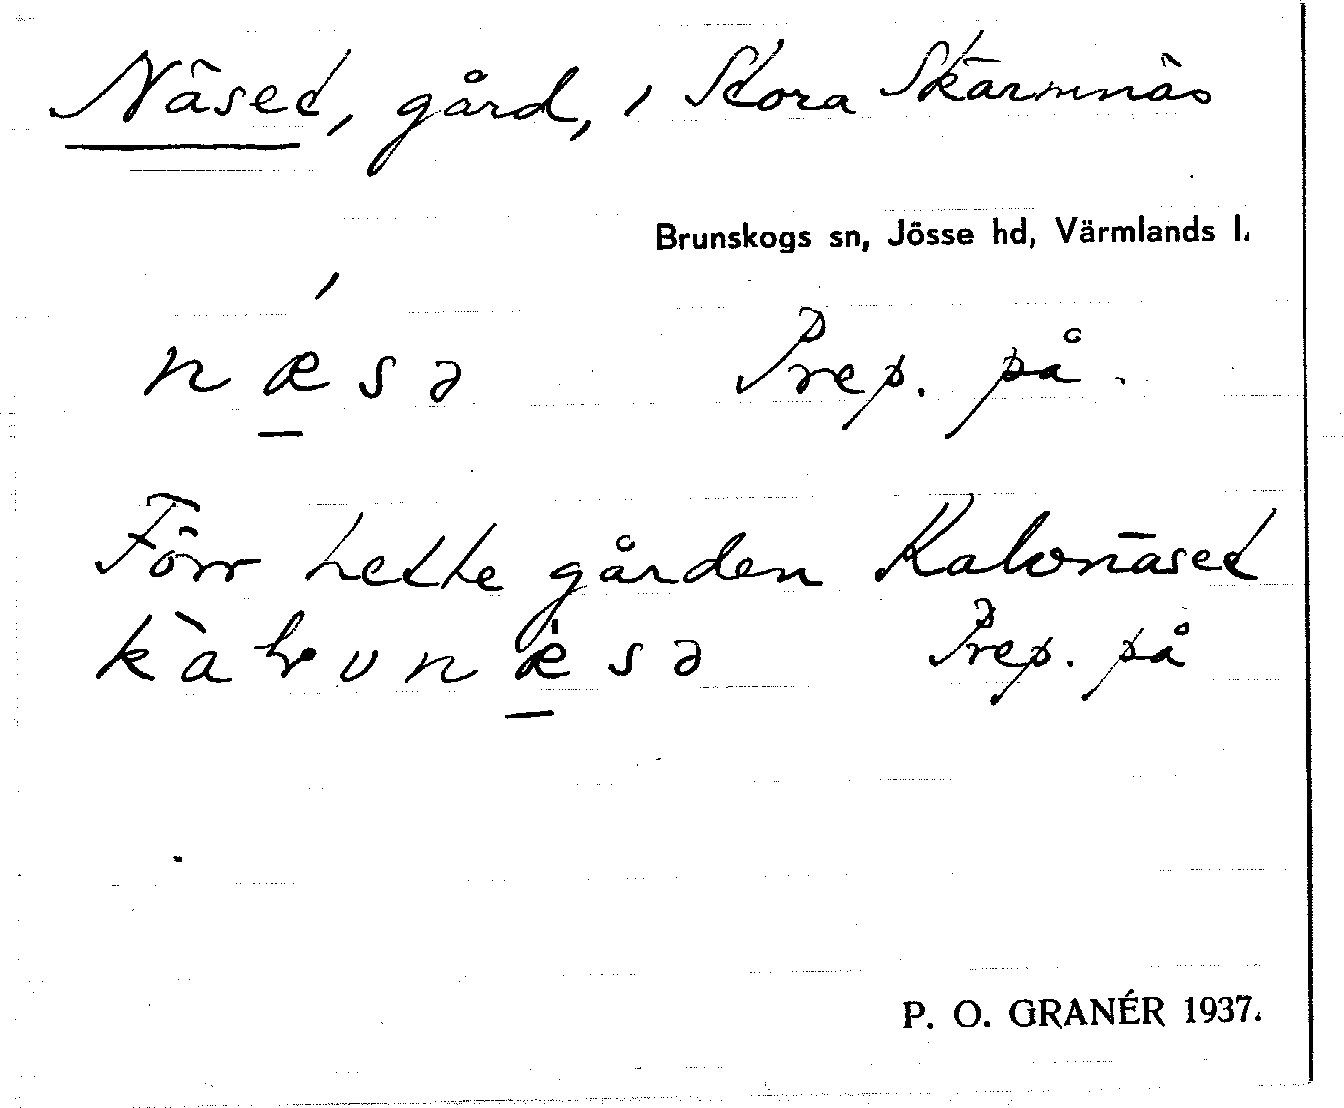 Näset, gård, i Stora Skärmnäs
Brunskogs sn, Jösse hd, Värmlands l.
nǽ̲sə Prep. på.
Förr hette gården Kalvnäset
nǽ̲sə Prep. på
P. O. GRANÉR 1937.